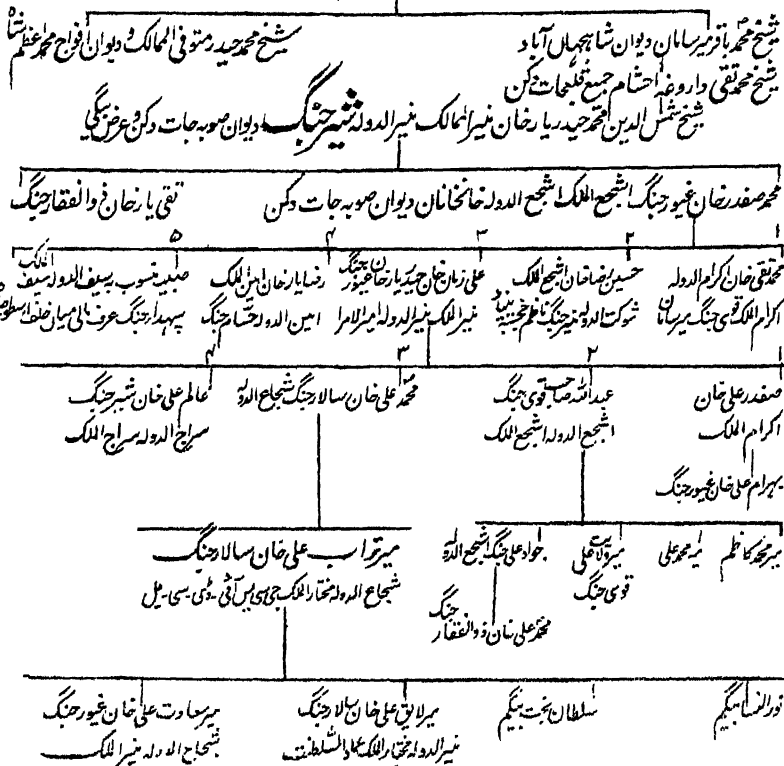 شیخ محمد باقر میر سامان دیوان شاہجہاں آباد
شیخ محمد حیدر متوفی الممالک و دیوان افواج محمد اعظم شاہ
شیخ محمد تقی داروغہ احشام جمیع قلعجات دکن
شیخ شمس الدین محمد حیدر یار خان منیر الممالک منیر الدولہ شیر جنگ دیوان صوبہ جات دکن و عرض بیگی
محمد صفدر خان غیور جنگ اشجع الملک اشجع الدولہ خانخانان دیوان صوبہ جات دکن
تقی یار خان ذوالفقار جنگ
۱ ۲ ۳ ۴ ۵
محمد تقی خان اکرام الدولہ
اکرام الملک قوی جنگ میر سامان
حسین رضا خان اشجع الملک
شوکت الدولہ منیر جنگ ناظم خجستہ بنیاد
علی زمان خان حیدر یار خان غیور جنگ
منیر الملک منیر الدولہ امیر الامرا
رضا یار خان امین الملک
امین الدولہ حسام جنگ
صبیہ منسوب بہ سیف الدولہ سیف الملک
سپہدار جنگ عرف مالی میاں خلف ارسطو جاہ
۱ ۲ ۳ ۴
صفدر علی خان
اکرام الملک
عبداللہ صاحب قوی جنگ
اشجع الدولہ اشجع الملک
محمد علی خان سالار جنگ شجاع الدولہ
عالم علی خان شیر جنگ
سراج الدولہ سراج الملک
بہرام علی خان غیور جنگ
میر محمد کاظم
میر محمد علی
میر ولایت علی
قوی جنگ
جواد علی جنگ اشجع الدولہ
محمد علی خان ذوالفقار جنگ
میر تراب علی خان سالار جنگ
شجاع الدولہ مختار الملک جی سی یس آئی - ڈی - سی - یل
نور النسا بیگم
سلطان بخت بیگم
میر لایق علی خان سالار جنگ
منیر الدولہ مختار الملک عماد السلطنت
میر سعادت علی خان غیور جنگ
شجاع الدولہ منیر الملک